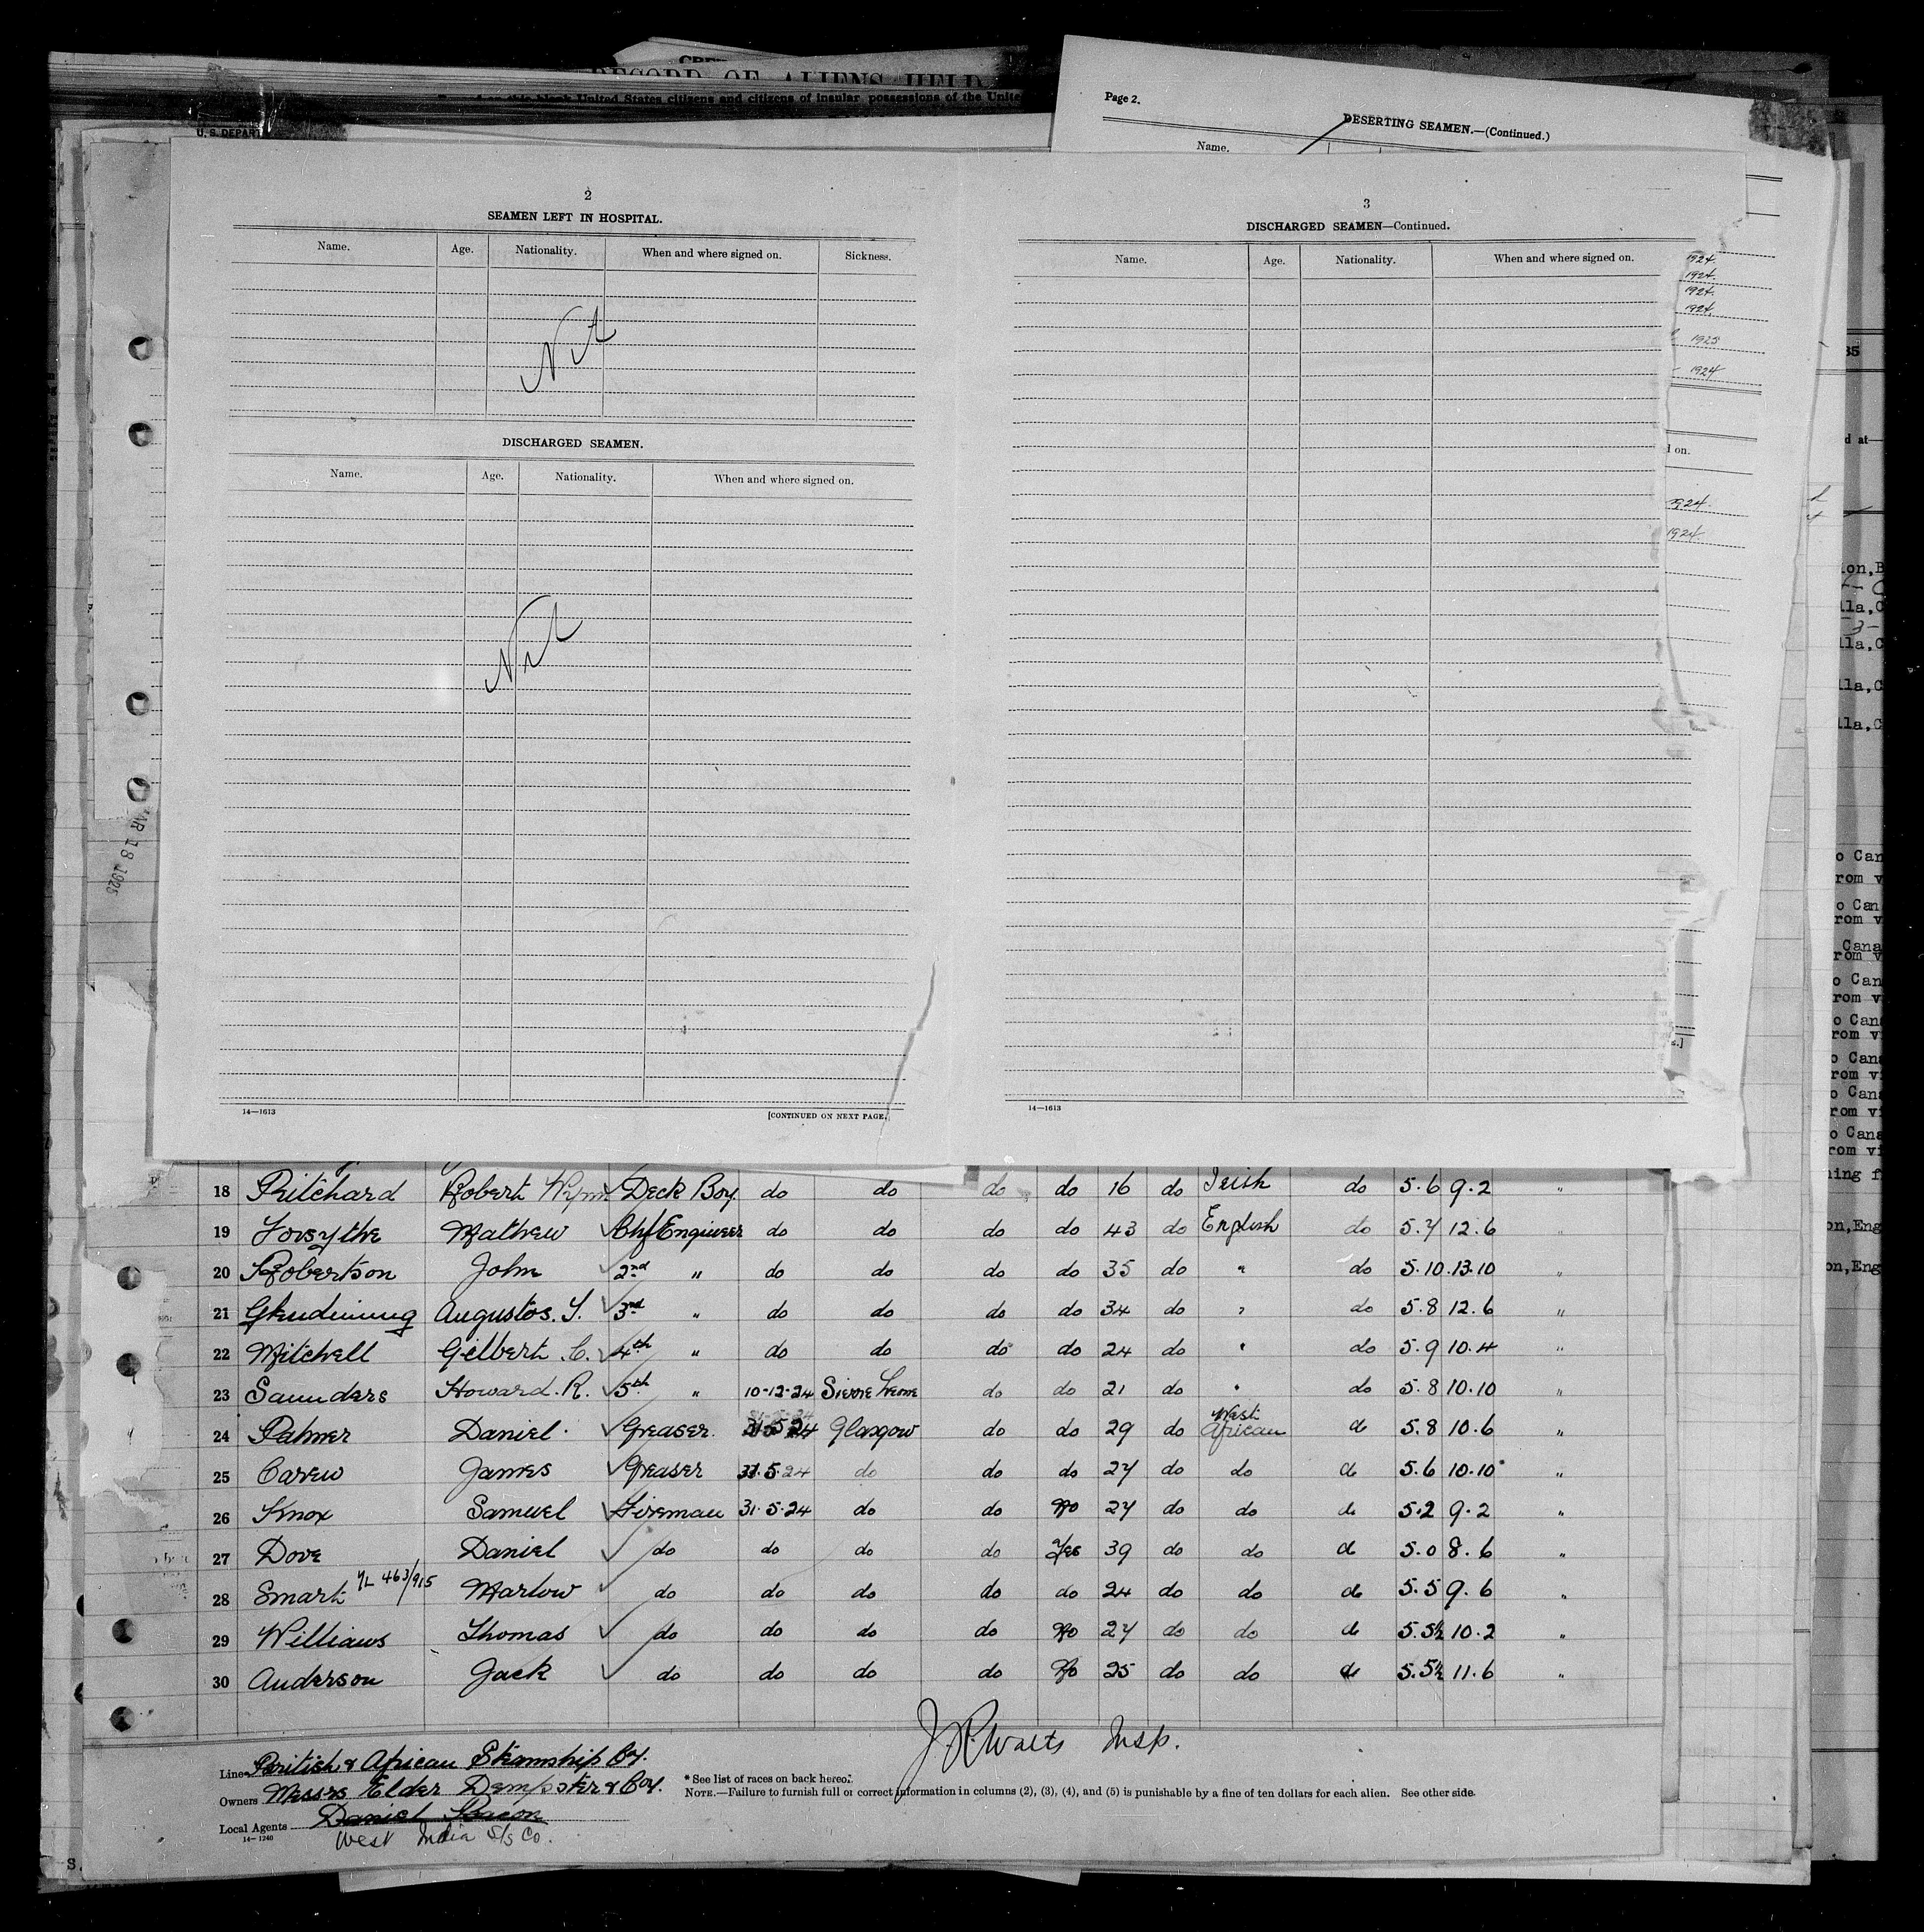 CREW
RECORD OF ALIENS HELD
United States citizens and citizens of insular possessions of the Unite
U. S. DEPART
Page 2.
DESERTING SEAMEN.—(Continued.)
Name.
2
SEAMEN LEFT IN HOSPITAL.
Name. Age. Nationality. When and where signed on. Sickness.
Nil
DISCHARGED SEAMEN.
Name. Age. Nationality. When and where signed on.
Nil
14—1613
[CONTINUED ON NEXT PAGE.]
3
DISCHARGED SEAMEN—Continued.
Name. Age. Nationality. When and where signed on.
14—1613
1924.
1924.
1924.
1924.
1925
1924
d at—
d on.
1924.
1924
MAR 18 1925
18 Pritchard Robert Wynn Deck Boy do do do do 16 do Irish do 5.6 9.2 "
19 Forsythe Mathew Chf Engineer do do do do 43 do English do 5.7 12.6 "
20 Robertson John 2nd " do do do do 35 do " do 5.10 13.10 "
21 Glendinning Augustos. Y. 3rd " do do do do 34 do " do 5.8 12.6 "
22 Mitchell Gilbert C. 4th " do do do do 24 do " do 5.9 10.4 "
23 Saunders Howard. R. 5th " 10-12-24 Sierre Leone do do 21 do " do 5.8 10.10 "
24 Palmer Daniel Greaser 31-5-24 Glasgow do do 29 do West African do 5.8 10.6 "
25 Carew James Greaser 31.5.24 do do do 27 do do do 5.6 10.10 "
26 Knox Samuel Fireman 31.5.24 do do No 27 do do do 5.2 9.2 "
27 Dove Daniel do do do do Yes 39 do do do 5.0 8.6 "
28 Smart 463/915 Marlow do do do do do 24 do do do 5.5 9.6 "
29 Williams Thomas do do do do No 27 do do do 5.5½ 10.2 "
30 Anderson Jack do do do do No 25 do do do 5.5½ 11.6 "
J. R. Walts Insp.
Line British & African Steamship Coy.
Owners Messrs Elder Dempster & Coy.
Local Agents Daniel Bacon
West India S/S Co.
14—1240
* See list of races on back hereof.
NOTE.—Failure to furnish full or correct information in columns (2), (3), (4), and (5) is punishable by a fine of ten dollars for each alien. See other side.